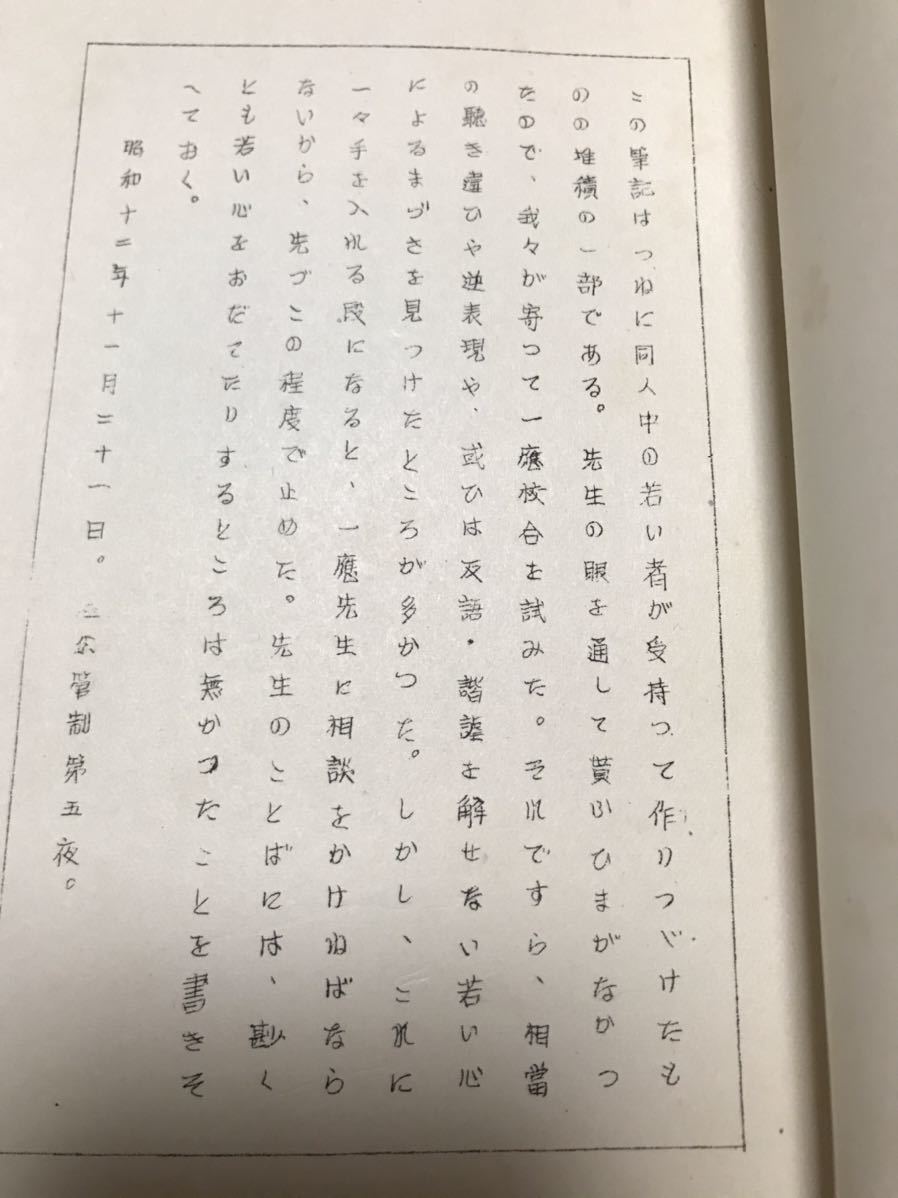 この筆記はつねに同人中の若い者が受持つて作りつゞけたも
のの堆積の一部である。先生の眼を通して貰ふひまがなかつ
たので、我々が寄つて一應校合を試みた。それですら、相當
の聽き違ひや逆表現や、或ひは反語・諧謔を解せない若い心
によるまづさを見つけたところが多かつた。しかし、これに
一々手を入れる段になると、一應先生に相談をかけねばなら
ないから、先づこの程度で止めた。先生のことばには、尠く
とも若い心をおだてたりするところは無かつたことを書きそ
へておく。
昭和十二年十一月二十一日。管制第五夜。